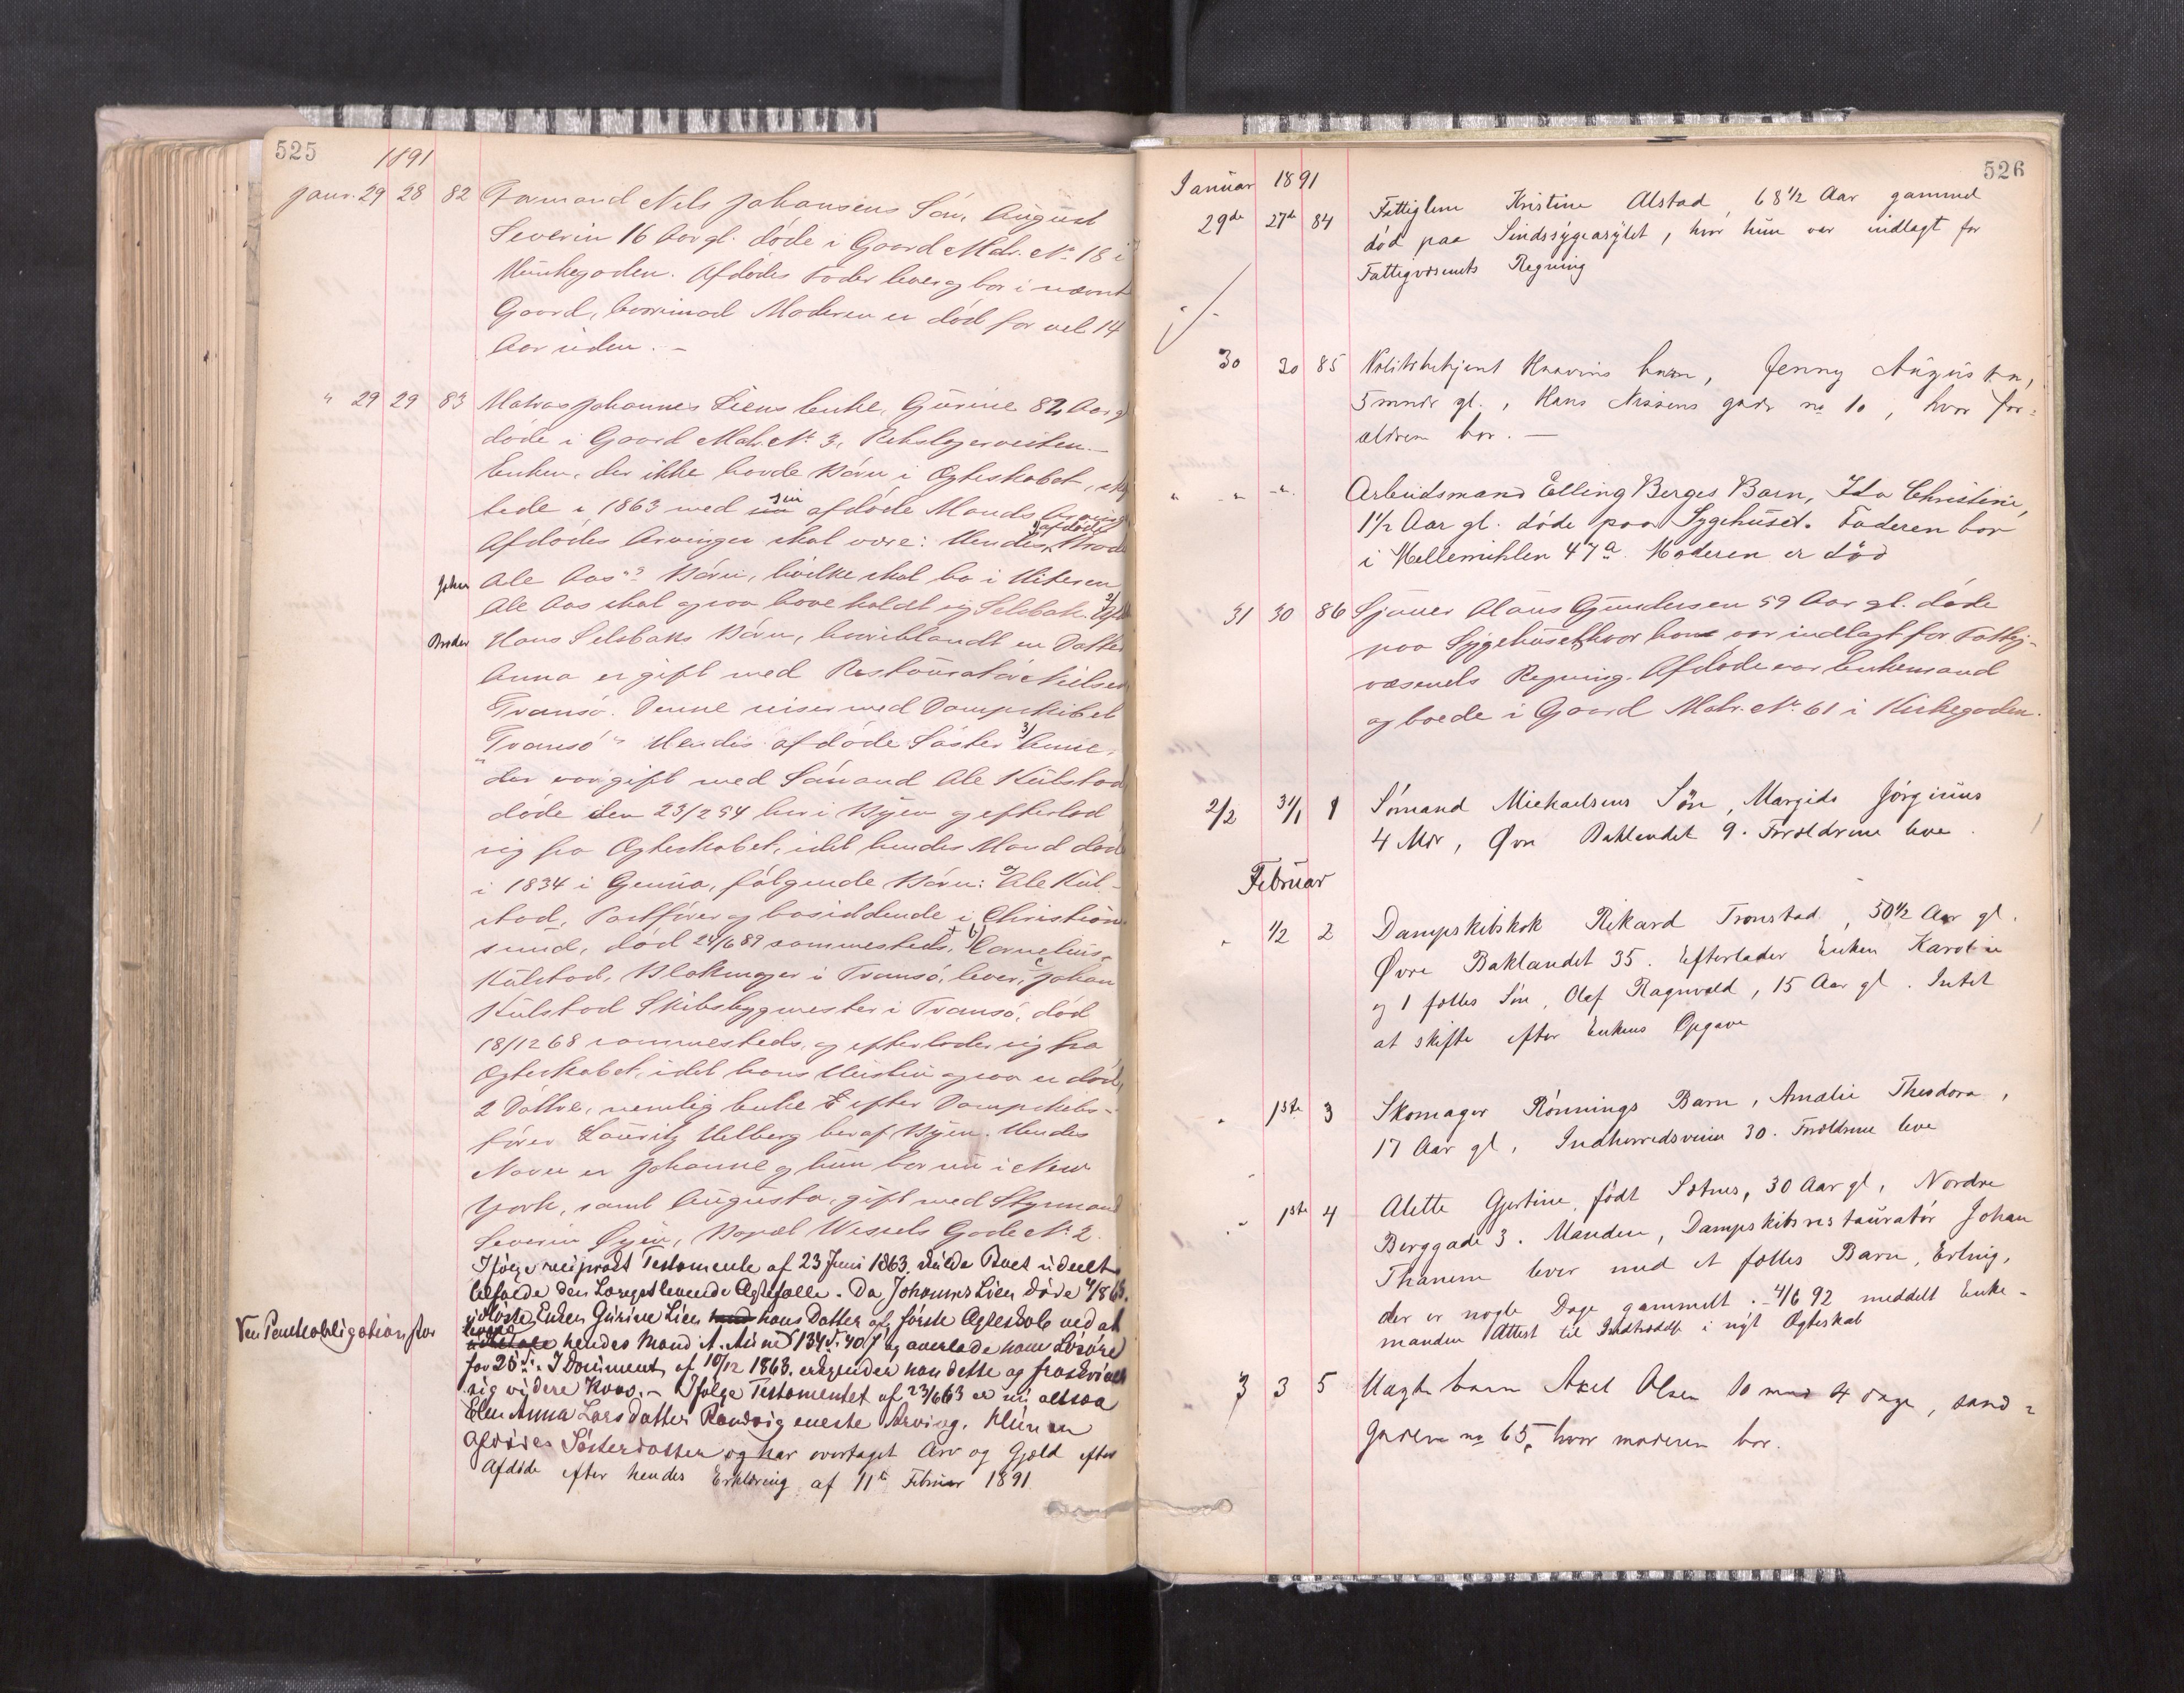 525
1891
Janr. 29 28 82 Formand Nils Johansens Sön, August
Severin 16 Aar gl. døde i Gaard Matr. No 18 i
Munkegaden. Afdødes Fader lever og bor i nævnte
Gaard, hvorimod Moderen er død for vel 14
Aar siden. –
" 29 29 83 Matros Johannes Liens Enke, Gurine 82 Aar gl
døde i Gaard Matr. No 3, Rebslagerveiten. –
Enken, der ikke havde Børn i Ægteskabet, skif
tede i 1863 med sin afdøde Mands Arving
Afdødes Arvinger skal være: Hendes 1) afdøde Broder
John Ole Aas's Børn, hvilke skal bo i Hiteren
Ole Aas skal ogsaa have kaldt sig Selsbak. 2) Afd
Broder Hans Selsbaks Børn, hvoriblandt en Datter
Anna er gift med Restauratør Nielsen
Tromsø. Denne reiser med Dampskibet
"Tromsø". Hendes afdøde Søster 3) Anne,
der var gift med Sømand Ole Kulstad
døde den 23/2 54 her i Byen og efterlod
sig fra Ægteskabet, idet hendes Mand døde
i 1834 i Genua, følgende Børn: a) Ole Kul-
stad, Postfører og bosiddende i Christian
sund, død 24/6 89 sammesteds, b) Cornelius
Kulstad, Blokmager i Tromsø, lever, c Johan
Kulstad Skibsbygmester i Tromsø, død
18/12 68 sammesteds, og efterlader sig fra
Ægteskabet, idet hans Hustru ogsaa er død,
2 Døttre, nemlig Enke efter Dampskibs-
fører Lauritz Helberg her af Byen. Hendes
Navn er Johanne og hun bor nu i New
York, samt Augusta, gift med Styrmand
Severin Øyen, Bopæl Wessels Gade No 2.
Ifølge reciprokt Testamente af 23 Juni 1863. skulde Boet udeelt
tilfalde den Længstlevende Ægtefælle. Da Johannes Lien døde 4/8 63.
udløste Enken Gurine Lien hans Datter af første Ægteskab ved at
Ved Panteobligation for
hendes Mand A. Aune 134 40 og overlade ham Løsøre
for 25. I Document af 10/12 1863. erkjender han dette og fraskriver
sig videre Krav. – Ifølge Testamentet af 23/6 63 er nu altsaa
Elen Anna Larsdatter Randvig eneste Arving. Hun er
Afdødes Søsterdatter og har overtaget Arv og Gjæld efter
Afdøde efter hendes Erklæring af 11te Februar 1891
526
Januar 1891
29de 27de 84 Fattiglem Kristine Alstad, 68 1/2 Aar gammel
død paa Sindssygeasylet, hvor hun var indlagt for
Fattigvæsenets Regning
30 30 85 Politibetjent Haavins barn, Jenny Augusta,
5 mndr gl., Hans Nissens gade no 10, hvor for-
ældrene bor. –
" -"- -"- Arbeidsmand Elling Berges Barn, Ida Christine,
1 1/2 Aar gl. døde paa Sygehuset. Faderen bor
i Møllemuhlen 47a. Moderen er død
31 30 86 Sjauer Olaus Gundersen 59 Aar gl. døde
paa Sygehuset, hvor han var indlagt for Fattig-
væsenets Regning. Afdøde var Enkemand
og boede i Gaard Matr. No 61 i Kirkegaden.
2/2 31/1 1 Sømand Michaelsens Søn, Margido Jørginius
4 Mdr, Øvre Baklandet 9. Forældrene leve.
Februar
" 1/2 2 Dampskibskok Rikard Tronstad, 50 1/2 Aar gl.
Øvre Baklandet 35. Efterlader Enken Karoline
og 1 fælles Søn, Olaf Ragnvald, 15 Aar gl. Intet
at skifte efter Enkens Opgave
" 1ste 3 Skomager Rønnings Barn, Amalie Theodora,
17 Aar gl, Indherredsveien 30. Forældrene leve
" 1ste 4 Alette Gjertine, født Sætnes, 30 Aar gl, Nordre
Berggade 3. Manden, Dampskibsrestauratør Johan
Thanem lever med et fælles Barn, Erling,
der er nogle Dage gammelt. – 4/6 92 meddelt Enke-
manden Attest til Indtrædelse i nyt Ægteskab
3 3 5 Uægte barn Axel Olsen 10 mnd 4 dage, sand-
gaden no 65, hvor moderen bor.